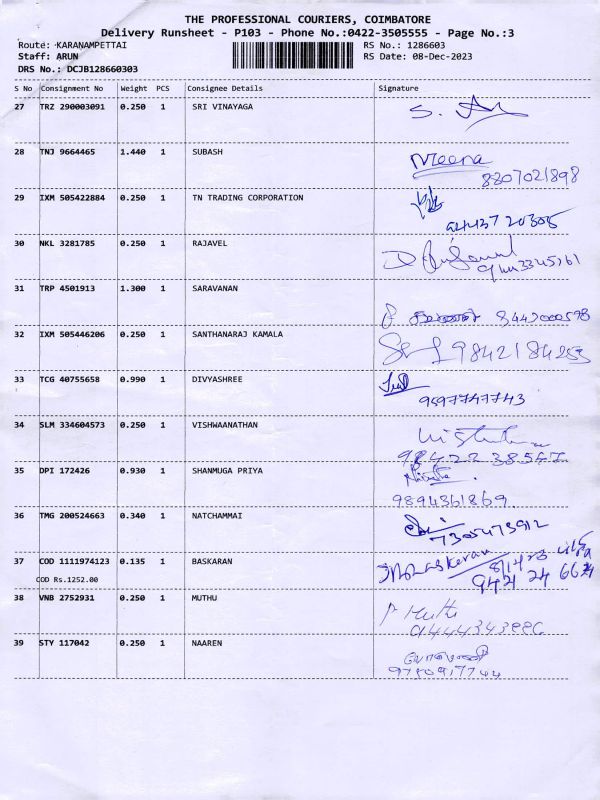 THE PROFESSIONAL COURIERS, COIMBATORE
Delivery Runsheet - P103 - Phone No.:0422-3505555 - Page No.:3
Route: KARANAMPETTAI RS No.: 1286603
Staff: ARUN RS Date: 08-Dec-2023
DRS No.: DCJB128660303
S No Consignment No Weight PCS Consignee Details Signature
27 TRZ 290003091 0.250 1 SRI VINAYAGA
28 TNJ 9664465 1.440 1 SUBASH Meena
8807021898
29 IXM 505422884 0.250 1 TN TRADING CORPORATION
30 NKL 3281785 0.250 1 RAJAVEL
31 TRP 4501913 1.300 1 SARAVANAN
32 IXM 505446206 0.250 1 SANTHANARAJ KAMALA 9842184253
33 TCG 40755658 0.990 1 DIVYASHREE
9597747743
34 SLM 334604573 0.250 1 VISHWAANATHAN
9842238547
35 DPI 172426 0.930 1 SHANMUGA PRIYA
9894361869
36 TMG 200524663 0.340 1 NATCHAMMAI
7305473912
37 COD 1111974123 0.135 1 BASKARAN
COD Rs.1252.00
38 VNB 2752931 0.250 1 MUTHU P Muthu
39 STY 117042 0.250 1 NAAREN